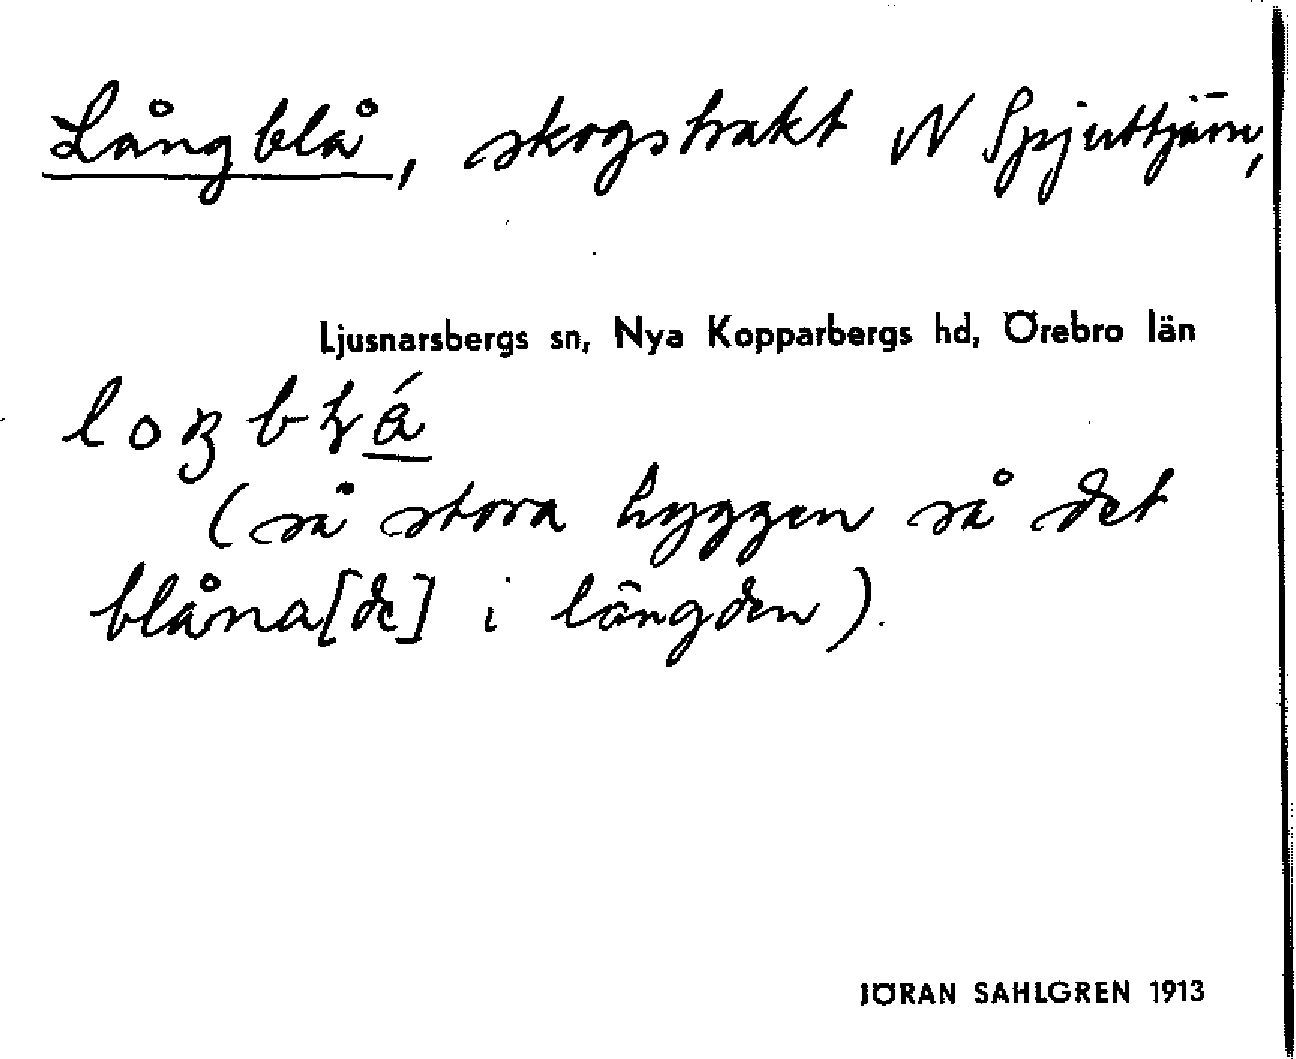 Långblå, skogstrakt N Spjuttjärn,
Ljusnarsbergs sn, Nya Kopparbergs hd, Örebro län
(så stora hyggen så det
blåna[de] i längden).
JÖRAN SAHLGREN 1913